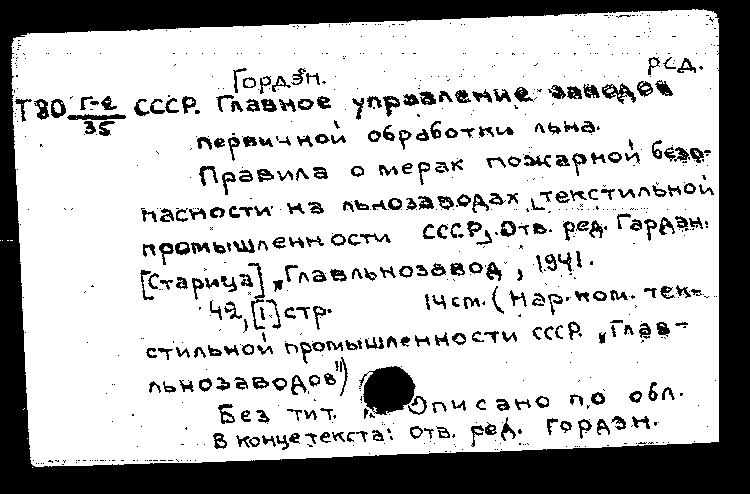 Гордэн. рсд.
Т80 Г-2/35 СССР. Главное управление заводов
первичной обработки льна.
Правила о мерах пожарной безо-
пасности на льнозаводах [текстильной
промышленности СССР]. Отв. ред. Гардэн.
[Старица], "Главльнозавод", 1941.
42, [1] стр. 14 см. (Нар. ком. тек-
стильной промышленности СССР. "Глав-
льнозаводов")
Без тит. Описано по обл.
В конце текста: отв. ред. Гордэн.